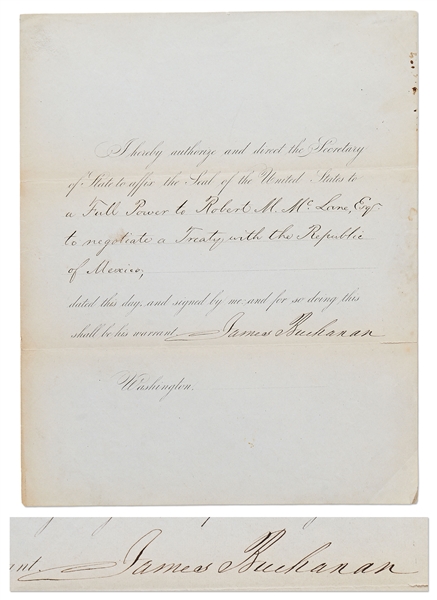 I hereby authorize and direct the Secretary
of State to affix the Seal of the United States to
a Full Power to Robert M. Mc Lane, Esqr
to negotiate a Treaty with the Republic
of Mexico,
dated this day, and signed by me and for so doing this
shall be his warrant. James Buchanan
Washington.
ant. James Buchanan